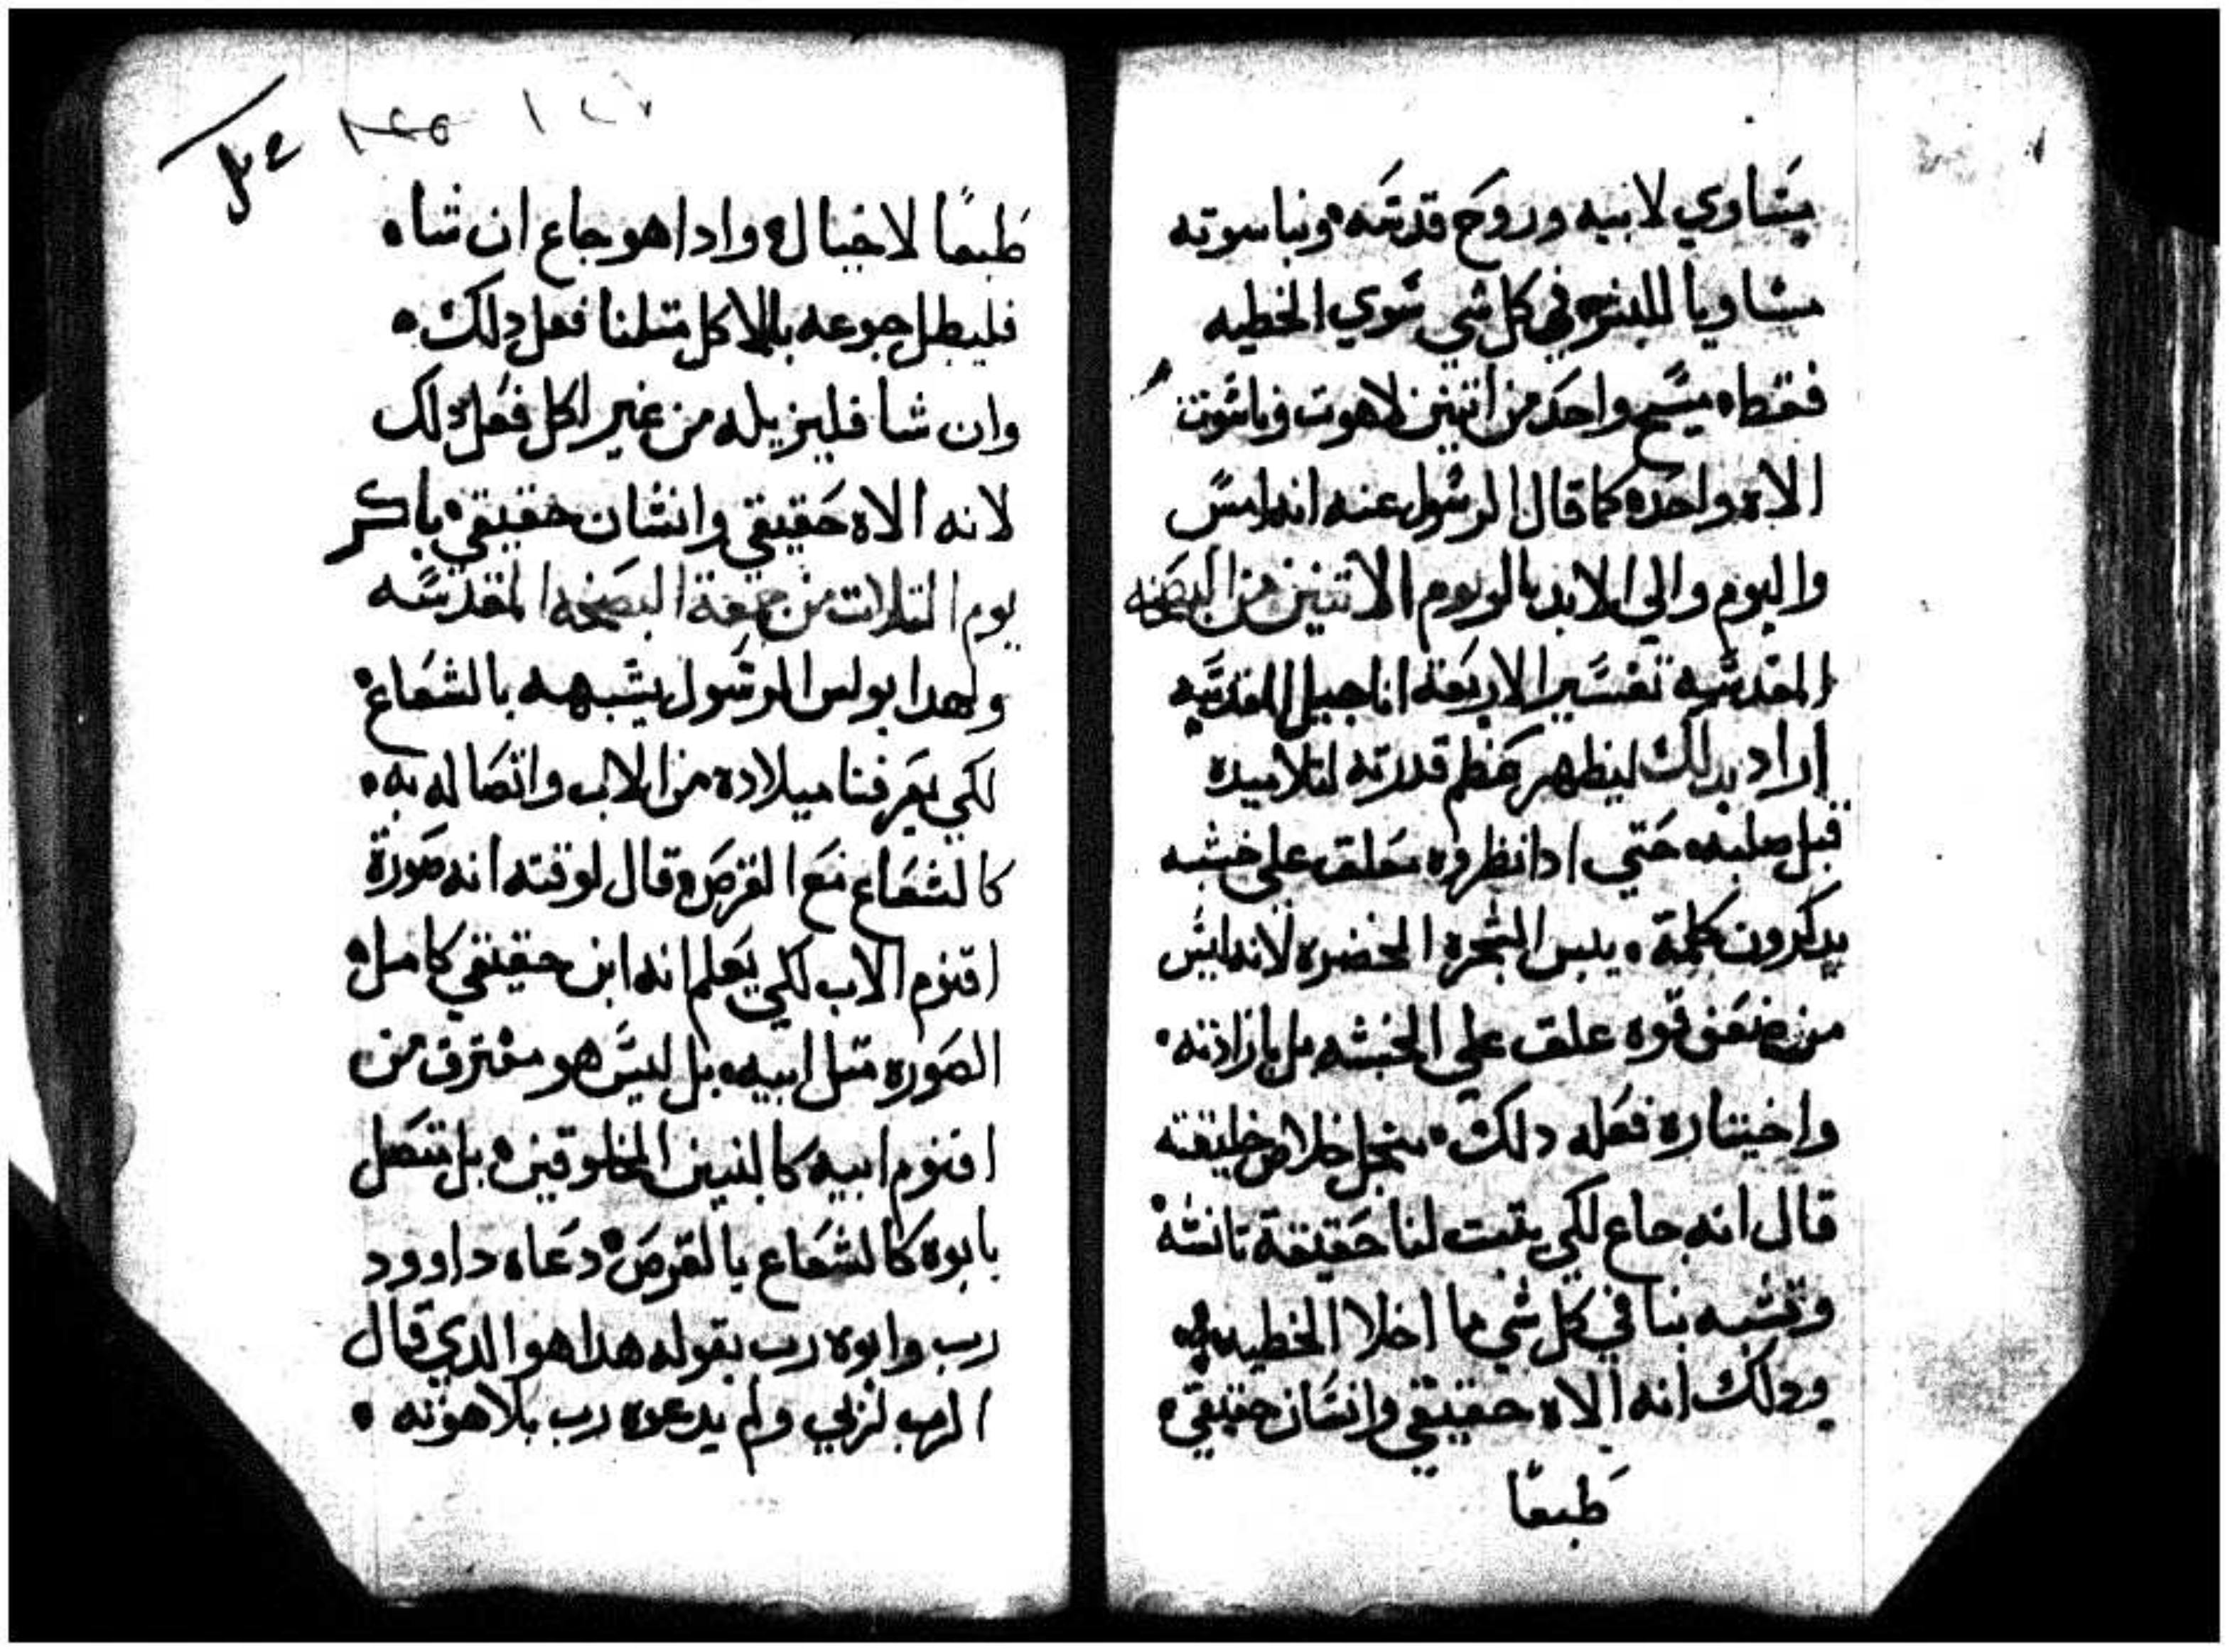 يساوي لابيه وروح قدسه وبناسوته
مساويا للبشر في كل شي سوي الخطيه
فقط مسيح واحد من اتنين لاهوت وناسوت
الاه واحد كما قال الرسول عنه انه امس
واليوم والي الابد باكر يوم الاتنين من البصخه
المقدسه تفسير الاربعة اناجيل المقدسه
اراد بدلك ليظهر عظم قدرته لتلاميده
قبل صلبه حتي ادا نظروه معلق علي خشبه
يدكرون كلمة يبس الشجره الخضره لانه ليس
من ضعف قوه علق علي الخشبه بل بارادته
واختياره فعل دلك منجل خلاص خليقته
قال انه جاع لكي يتبت لنا حقيقة تانسه
وتشبه بنا في كل شي ما اخلا الخطيه
ودلك انه الاه حقيقي وانسان حقيقي
طبعا
١٢٧
طبعًا لا خيال وادا هو جاع ان شاه
فليبطل جوعه بالاكل متلنا فعل دلك
وان شا فليزيله من غير اكل فعل دلك
لانه الاه حقيقي وانسان حقيقي باكر
يوم التلات من جمعة البصخه المقدسه
ولهدا بولس الرسول يشبهه بالشعاع
لكي يعرفنا ميلاده من الاب واتصاله به
كالشعاع مع القرص وقال لوقته انه صورة
اقنوم الاب لكي يعلم انه ابن حقيقي كامل
الصوره متل ابيه بل ليس هو مفترق من
اقنوم ابيه كالبنين المخلوقين بل تتصل
بابوه كالشعاع بالقرص دعاه داوود
رب وابوه رب بقوله هدا هو الدي قال
الرب لربي ولم يدعوه رب بلاهوته